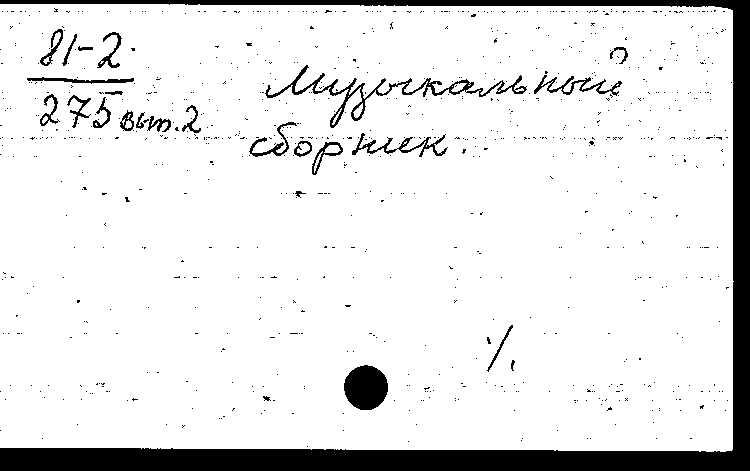 81-2
275 вып. 2
Музыкальный
сборник.
%